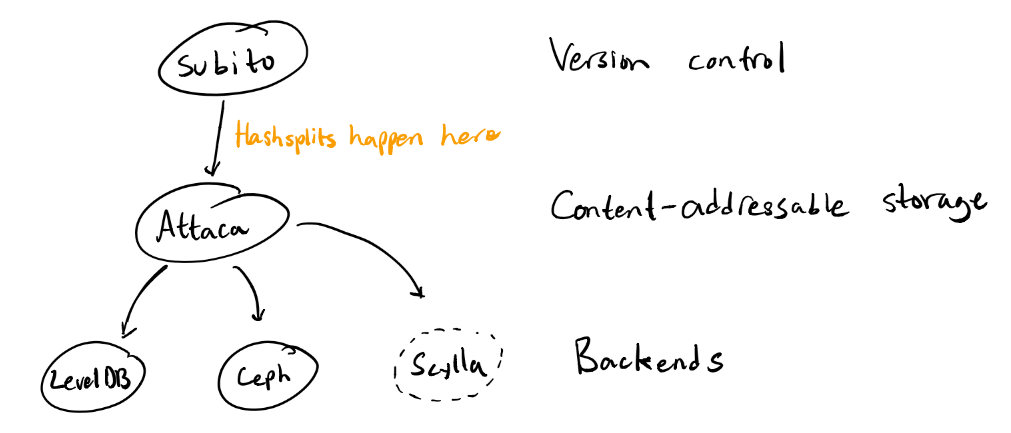 Subito
Version control
Hashsplits happen here
Attaca
Content-addressable storage
LevelDB
Ceph
Scylla
Backends